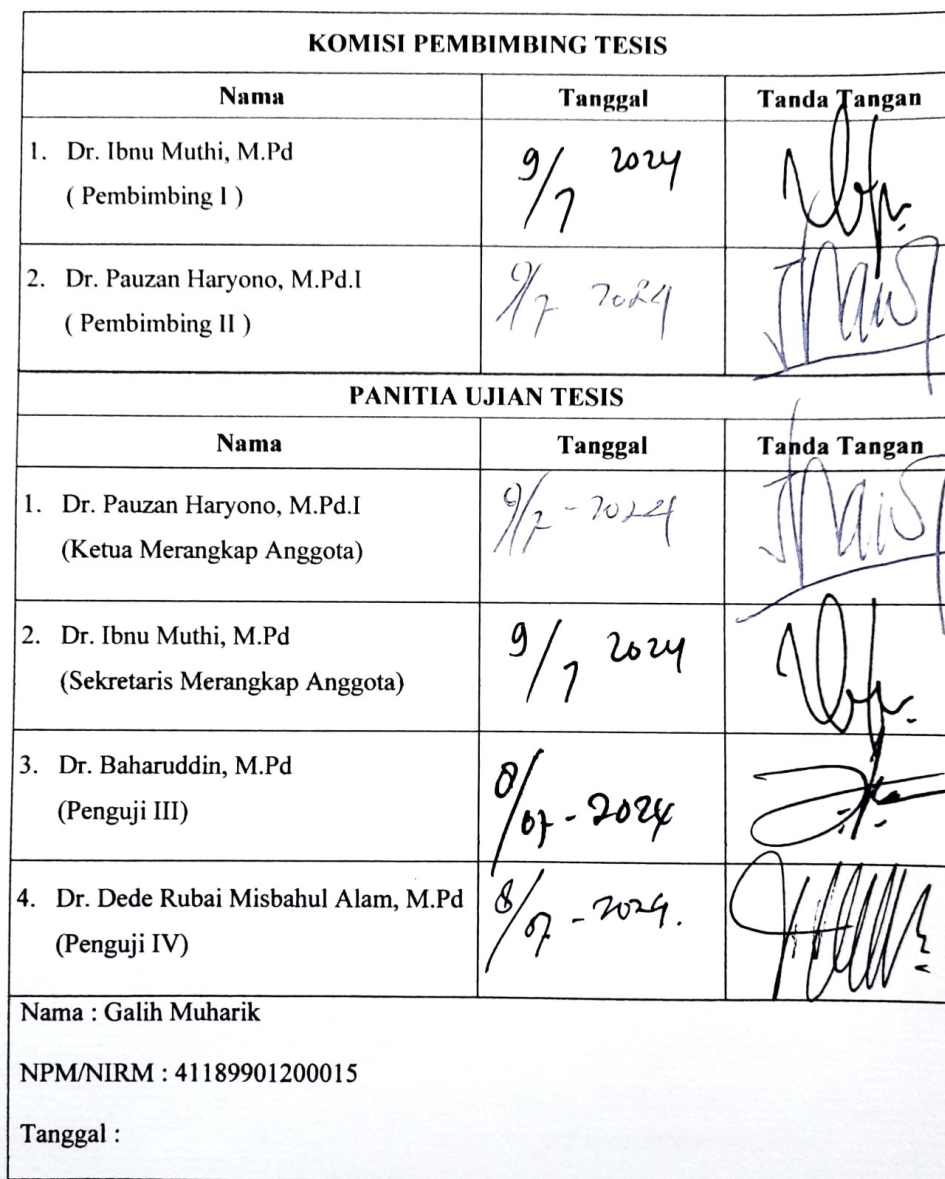 KOMISI PEMBIMBING TESIS
Nama Tanggal Tanda Tangan
1. Dr. Ibnu Muthi, M.Pd
( Pembimbing I )
9/7 2024
2. Dr. Pauzan Haryono, M.Pd.I
( Pembimbing II )
9/7 2024
PANITIA UJIAN TESIS
Nama Tanggal Tanda Tangan
1. Dr. Pauzan Haryono, M.Pd.I
(Ketua Merangkap Anggota)
9/7 - 2024
2. Dr. Ibnu Muthi, M.Pd
(Sekretaris Merangkap Anggota)
9/7 2024
3. Dr. Baharuddin, M.Pd
(Penguji III)
8/07 - 2024
4. Dr. Dede Rubai Misbahul Alam, M.Pd
(Penguji IV)
8/07 - 2024.
Nama : Galih Muharik
NPM/NIRM : 41189901200015
Tanggal :